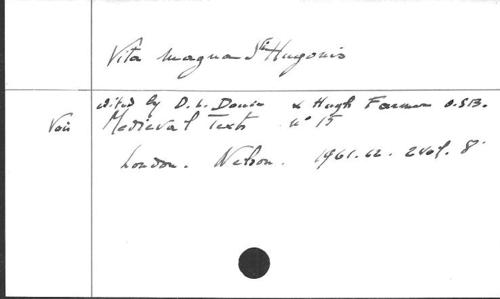 Vita magna Sti Hugonis
edited by D. L. Douie & Hugh Farmer O.S.B.
Voir Medieval Texts n° 15
London. Nelson. 1961.62. 2 vol. 8°